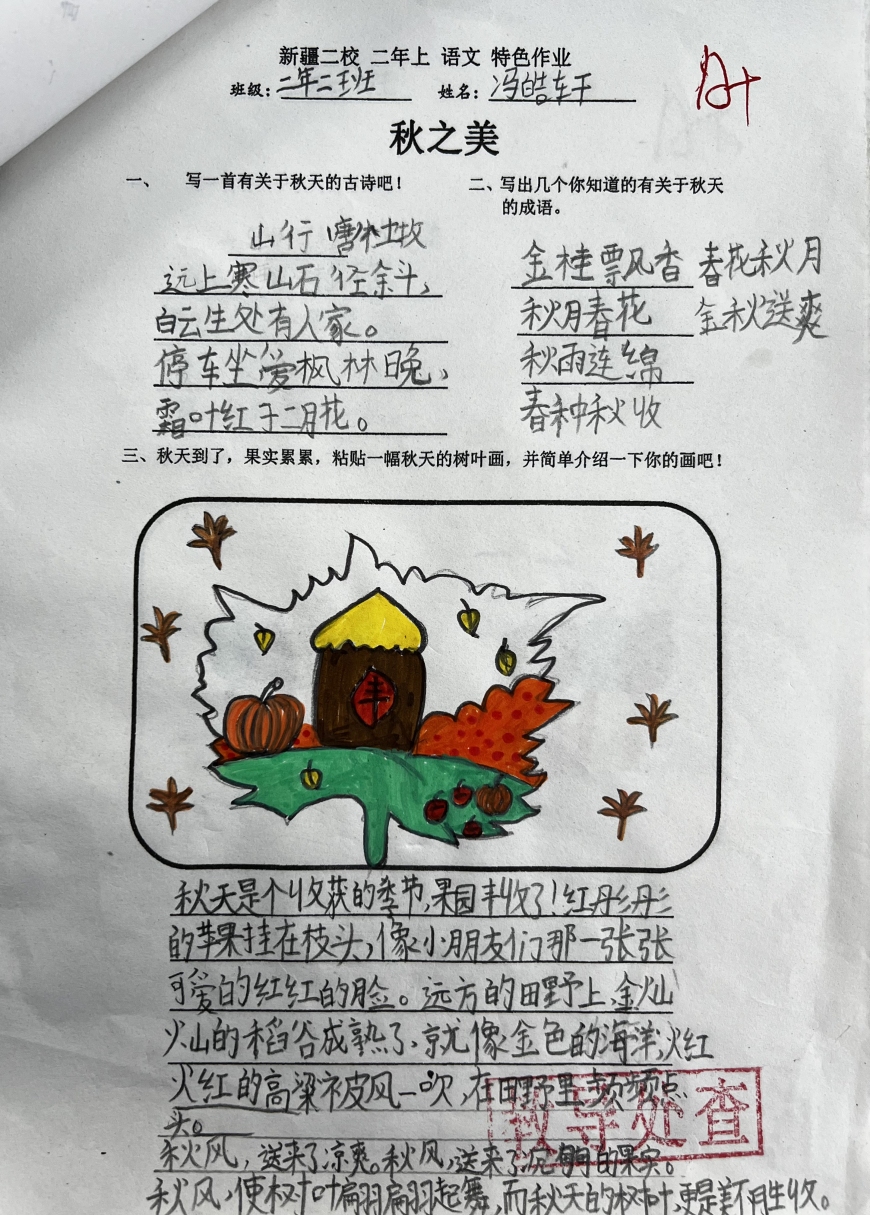 新疆二校 二年上 语文 特色作业
班级：二年二班 姓名：冯皓轩
A+
秋之美
一、 写一首有关于秋天的古诗吧！
山行 唐杜牧
远上寒山石径余斗，
白云生处有人家。
停车坐爱枫林晚，
霜叶红于二月花。
二、写出几个你知道的有关于秋天
的成语。
金桂飘风香 春花秋月
秋月春花 金秋送爽
秋雨连绵
春种秋收
三、秋天到了，果实累累，粘贴一幅秋天的树叶画，并简单介绍一下你的画吧！
丰
秋天是个收获的季节，果园丰收了！红彤彤
的苹果挂在枝头，像小朋友们那一张张
可爱的红红的脸。远方的田野上，金灿
灿的稻谷成熟了，就像金色的海洋，火红
火红的高粱被风一吹，在田野里频频点
头。
秋风，送来了凉爽。秋风，送来了的果实。
秋风，使树叶翩翩起舞，而秋天的树叶，更是美不胜收。
教导处查